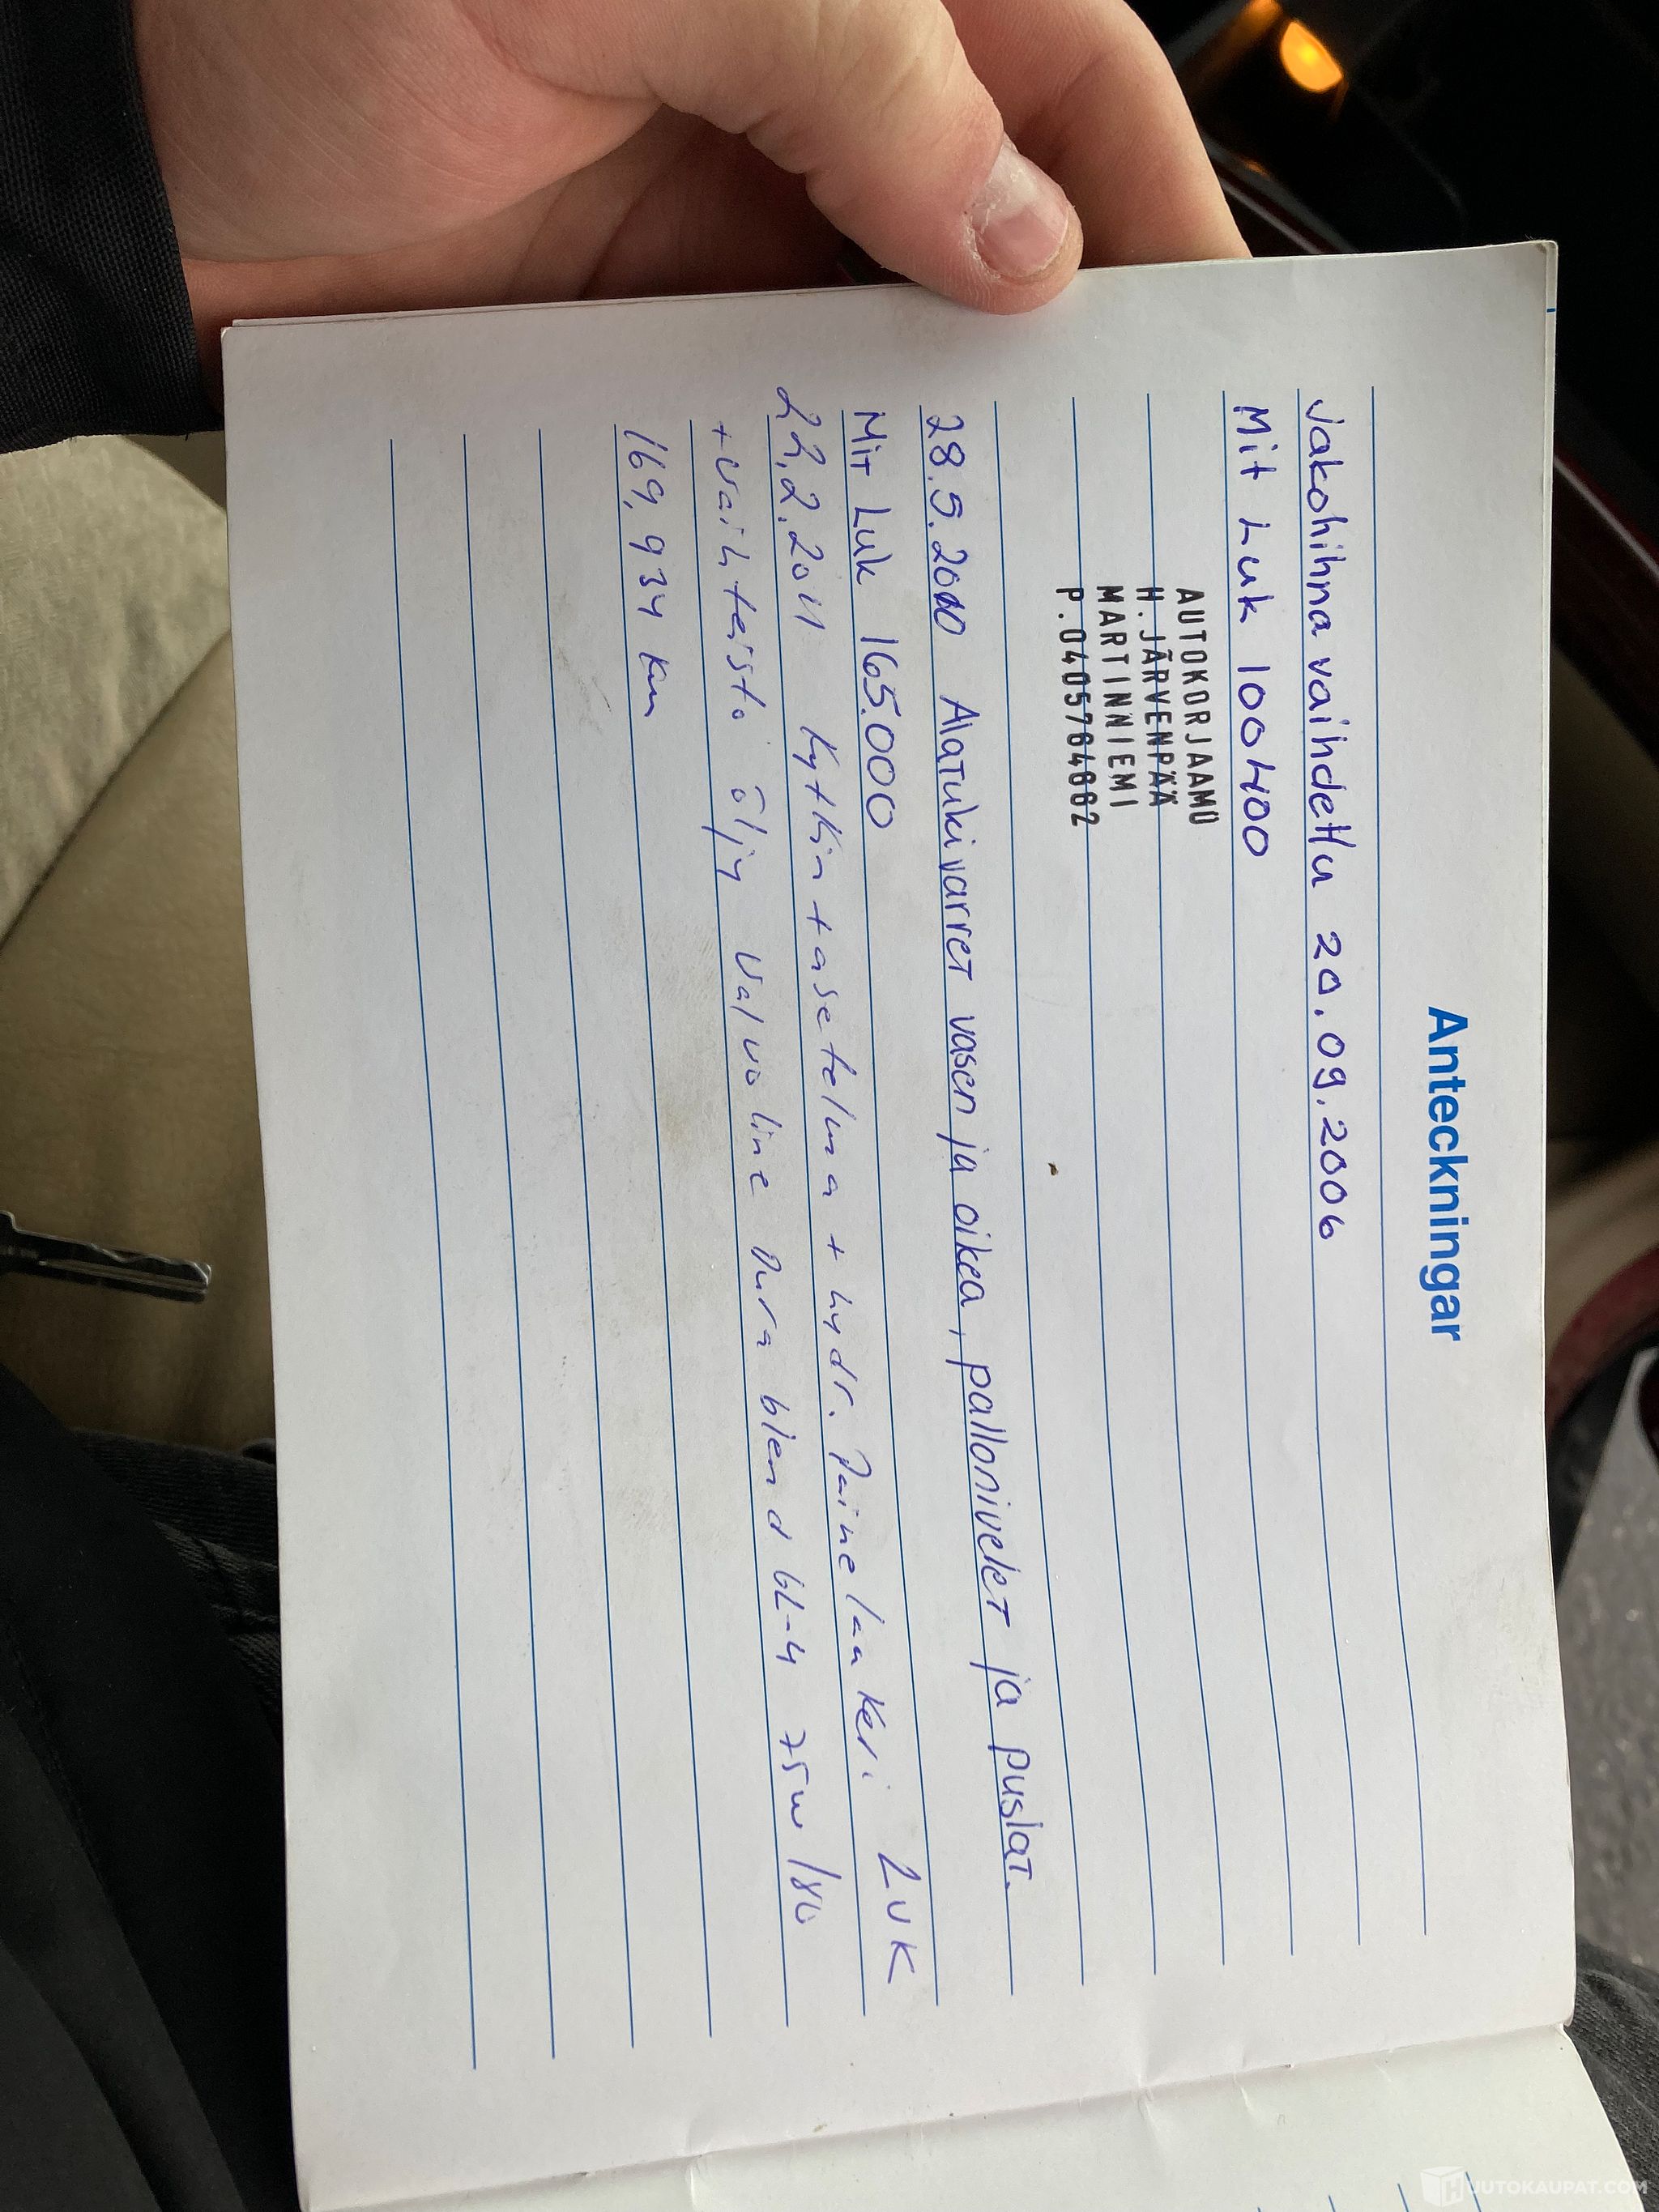 Anteckningar
Jakohihna vaihdettu 20.09.2006
Mit Luk 100400
AUTOKORJAAMO
H.JÄRVENPÄÄ
MARTINNIEMI
P.0405764662
28.5.2010 Alatukivarret vasen ja oikea, pallonivelet ja puslat.
Mit Luk 165.000
22.2.2011 Kytkin + asetelma + hydr. Painelaakeri LUK
+vaihteisto öljy Valvoline Durablend GL-4 75w/80
169,934 km
HUUTOKAUPAT.COM